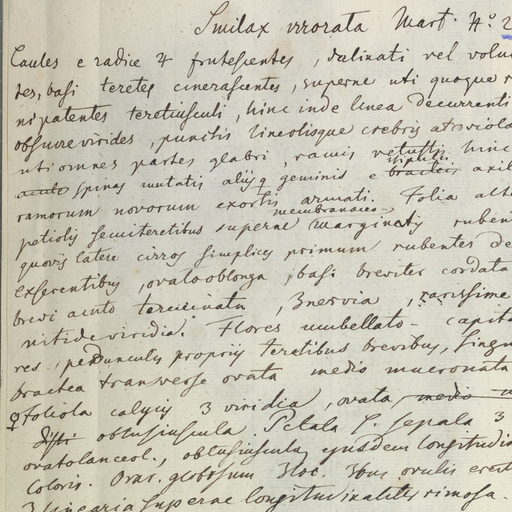 Smilax irrorata Mart. Nº 2
Caules e radice 4 frutescentes, dalinati vel volu
tes, basi teretes cinerascentes, superne uti quoque r
ni patentes teretiusculi, hinc inde linea decurrenti
obscure virides, punctis lineolisque crebris atroviola
uti omnes partes glabri, ramis vetustis hinc
acuto spinas mutatis aliisq geminis e stipulis bracteis axil
ramorum novorum exortis armati. Folia alte
petiolis semiteretibus superne membranaceo marginatis ruben
quovis latere cirros simplices primum rubentes de
exserentibus, ovatooblonga, basi breviter cordata
brevi acuto terminata, 3nervia, rarissime
nitide viridia. Flores umbellato-capita
res, pedunculis propriis teretibus brevibus, singu
bractea transverse ovata medio mucronata
♀ foliola calycis 3 viridia, ovata, medio
obtusiuscula. Petala s. sepala 3
ovatolanceol., obtusiuscula, ejusdem longitudin
coloris. Ovar. globosum 3loc. ovulis erect
3 linearia superne longitudinaliter rimosa.